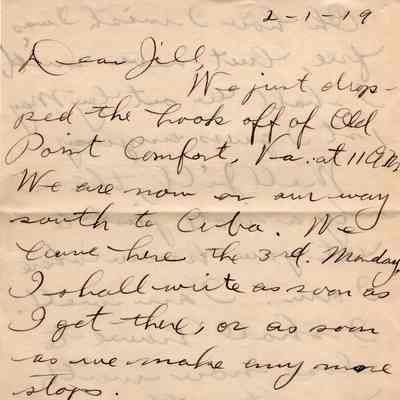 2-1-19
Dear Jill,
We just drop-
ped the hook off of Old
Point Comfort, Va. at 11 A.M.
We are now on our way
south to Cuba. We
leave here the 3rd. Monday,
I shall write as soon as
I get there, or as soon
as we make any more
stops.